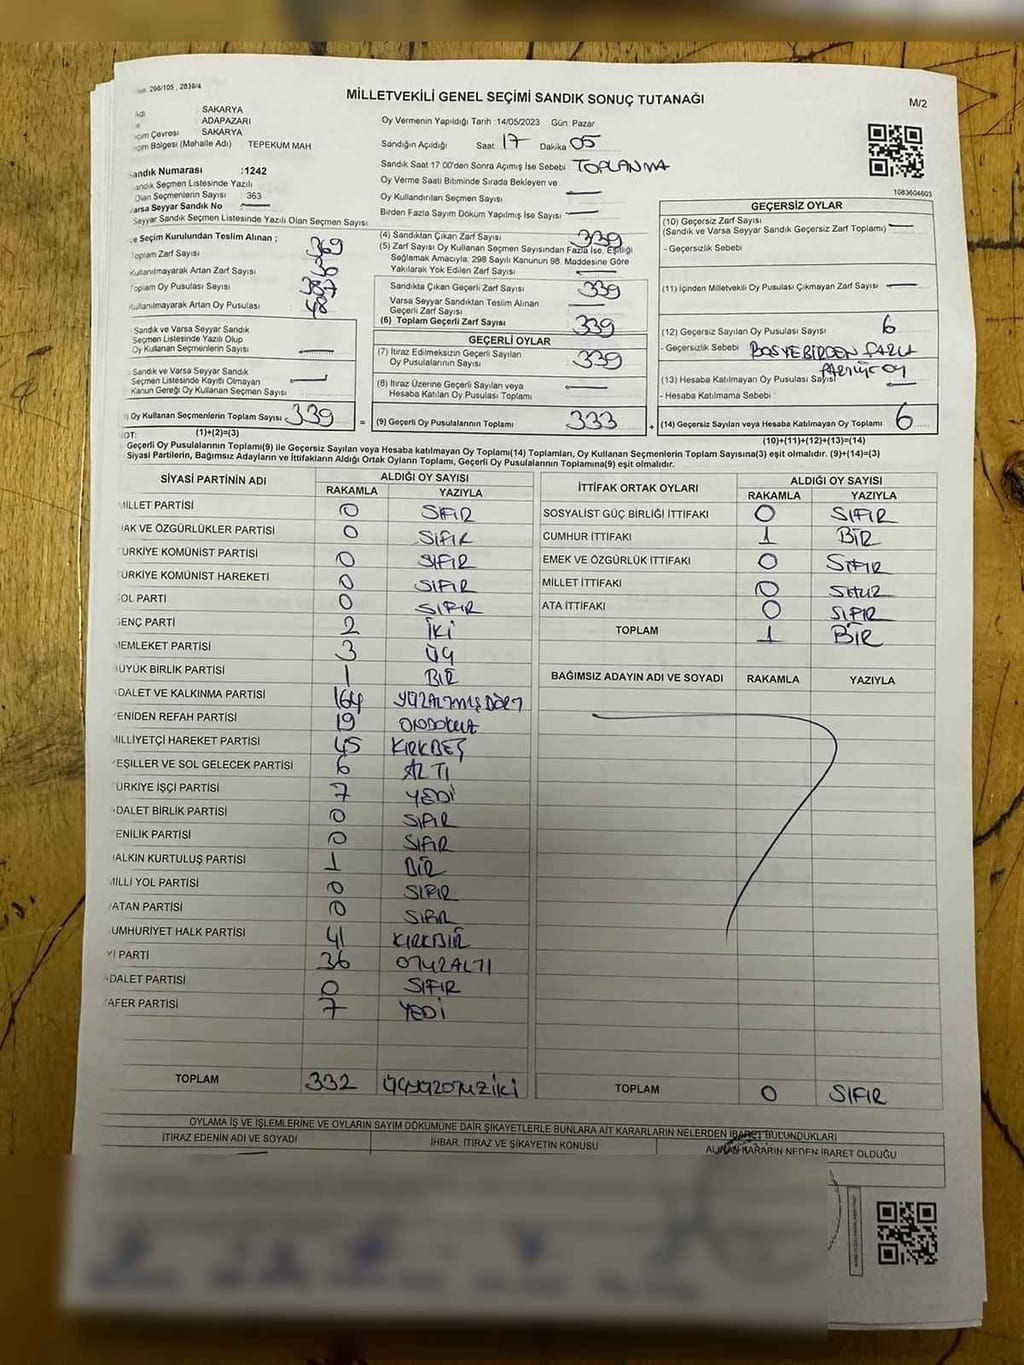 298/105 , 2839/4
MİLLETVEKİLİ GENEL SEÇİMİ SANDIK SONUÇ TUTANAĞI
M/2
Adı SAKARYA
ADAPAZARI
çim Çevresi SAKARYA
çim Bölgesi (Mahalle Adı) TEPEKUM MAH
Sandık Numarası :1242
Sandık Seçmen Listesinde Yazılı
Olan Seçmenlerin Sayısı 363
Varsa Seyyar Sandık No
Seyyar Sandık Seçmen Listesinde Yazılı Olan Seçmen Sayısı
Oy Vermenin Yapıldığı Tarih :14/05/2023 Gün: Pazar
Sandığın Açıldığı Saat 17 Dakika 05
Sandık Saat 17.00'den Sonra Açımış İse Sebebi TOPLANMA
Oy Verme Saati Bitiminde Sırada Bekleyen ve
Oy Kullandırılan Seçmen Sayısı
Birden Fazla Sayım Döküm Yapılmış İse Sayısı
1083604603
e Seçim Kurulundan Teslim Alınan ;
Toplam Zarf Sayısı 369
Kullanılmayarak Artan Zarf Sayısı 30
Toplam Oy Pusulası Sayısı 387
Kullanılmayarak Artan Oy Pusulası 48
Sandık ve Varsa Seyyar Sandık
Seçmen Listesinde Yazılı Olup
Oy Kullanan Seçmenlerin Sayısı
Sandık ve Varsa Seyyar Sandık
Seçmen Listesinde Kayıtlı Olmayan
Kanun Gereği Oy Kullanan Seçmen Sayısı
) Oy Kullanan Seçmenlerin Toplam Sayısı 339
(1)+(2)=(3)
(4) Sandıktan Çıkan Zarf Sayısı 339
(5) Zarf Sayısı Oy Kullanan Seçmen Sayısından Fazla İse, Eşitliği
Sağlamak Amacıyla, 298 Sayılı Kanunun 98. Maddesine Göre
Yakılarak Yok Edilen Zarf Sayısı
Sandıkta Çıkan Geçerli Zarf Sayısı 339
Varsa Seyyar Sandıktan Teslim Alınan
Geçerli Zarf Sayısı
(6) Toplam Geçerli Zarf Sayısı 339
GEÇERLİ OYLAR
(7) İtiraz Edilmeksizin Geçerli Sayılan
Oy Pusulalarının Sayısı 339
(8) İtiraz Üzerine Geçerli Sayılan veya
Hesaba Katılan Oy Pusulası Toplamı
= (9) Geçerli Oy Pusulalarının Toplamı 333 +
GEÇERSİZ OYLAR
(10) Geçersiz Zarf Sayısı
(Sandık ve Varsa Seyyar Sandık Geçersiz Zarf Toplamı)
- Geçersizlik Sebebi
(11) İçinden Milletvekili Oy Pusulası Çıkmayan Zarf Sayısı
(12) Geçersiz Sayılan Oy Pusulası Sayısı 6
- Geçersizlik Sebebi BOŞ VE BİRDEN FAZLA
(13) Hesaba Katılmayan Oy Pusulası Sayısı
- Hesaba Katılmama Sebebi
(14) Geçersiz Sayılan veya Hesaba Katılmayan Oy Toplamı 6
(10)+(11)+(12)+(13)=(14)
OT:
Geçerli Oy Pusulalarının Toplamı(9) ile Geçersiz Sayılan veya Hesaba katılmayan Oy Toplamı(14) Toplamları, Oy Kullanan Seçmenlerin Toplam Sayısına(3) eşit olmalıdır. (9)+(14)=(3)
Siyasi Partilerin, Bağımsız Adayların ve İttifakların Aldığı Ortak Oyların Toplamı, Geçerli Oy Pusulalarının Toplamına(9) eşit olmalıdır.
SİYASİ PARTİNİN ADI ALDIĞI OY SAYISI
RAKAMLA YAZIYLA
MİLLET PARTİSİ 0 SIFIR
AK VE ÖZGÜRLÜKLER PARTİSİ 0 SIFIR
ÜRKİYE KOMÜNİST PARTİSİ 0 SIFIR
ÜRKİYE KOMÜNİST HAREKETİ 0 SIFIR
OL PARTİ 0 SIFIR
GENÇ PARTİ 2 İKİ
MEMLEKET PARTİSİ 3 ÜÇ
ÜYÜK BİRLİK PARTİSİ 1 BİR
DALET VE KALKINMA PARTİSİ 164 YÜZALTMIŞDÖRT
ENİDEN REFAH PARTİSİ 19 ONDOKUZ
MİLLİYETÇİ HAREKET PARTİSİ 45 KIRKBEŞ
YEŞİLLER VE SOL GELECEK PARTİSİ 6 ALTI
ÜRKİYE İŞÇİ PARTİSİ 7 YEDİ
DALET BİRLİK PARTİSİ 0 SIFIR
YENİLİK PARTİSİ 0 SIFIR
HALKIN KURTULUŞ PARTİSİ 1 BİR
MİLLİ YOL PARTİSİ 0 SIFIR
VATAN PARTİSİ 0 SIFIR
UMHURİYET HALK PARTİSİ 41 KIRKBİR
Yİ PARTİ 36 OTUZALTI
ADALET PARTİSİ 0 SIFIR
ZAFER PARTİSİ 7 YEDİ
TOPLAM 332 ÜÇYÜZOTUZİKİ
İTTİFAK ORTAK OYLARI ALDIĞI OY SAYISI
RAKAMLA YAZIYLA
SOSYALİST GÜÇ BİRLİĞİ İTTİFAKI 0 SIFIR
CUMHUR İTTİFAKI 1 BİR
EMEK VE ÖZGÜRLÜK İTTİFAKI 0 SIFIR
MİLLET İTTİFAKI 0 SIFIR
ATA İTTİFAKI 0 SIFIR
TOPLAM 1 BİR
BAĞIMSIZ ADAYIN ADI VE SOYADI RAKAMLA YAZIYLA
TOPLAM 0 SIFIR
OYLAMA İŞ VE İŞLEMLERİNE VE OYLARIN SAYIM DÖKÜMÜNE DAİR ŞİKAYETLERLE BUNLARA AİT KARARLARIN NELERDEN İBARET BULUNDUKLARI
İTİRAZ EDENİN ADI VE SOYADI İHBAR, İTİRAZ VE ŞİKAYETİN KONUSU ALINAN KARARIN NEDEN İBARET OLDUĞU